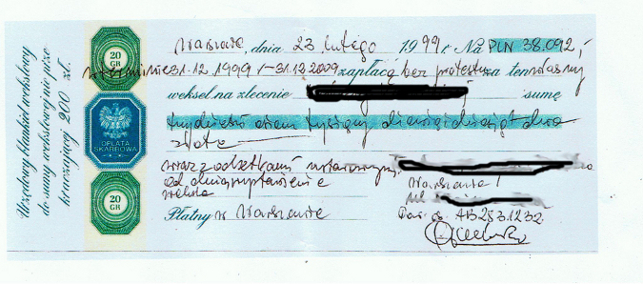 Urzędowy blankiet wekslowy
do sumy wekslowej nie prze
kraczającej 200 zł.
20
GR
OPŁATA
SKARBOWA
20
GR
Warszawa, dnia 23 lutego 1999 r. Na PLN 38.092,-
w terminie 31.12.1999 - 31.12.2009 zapłacę bez protestu za ten własny
weksel na zlecenie sumę
trzydzieści osiem tysięcy dziewięćdziesiąt dwa
złote
wraz z odsetkami ustawowymi
od dnia wystawienia
weksla
Warszawa
ul.
Płatny w Warszawie
AB2531232